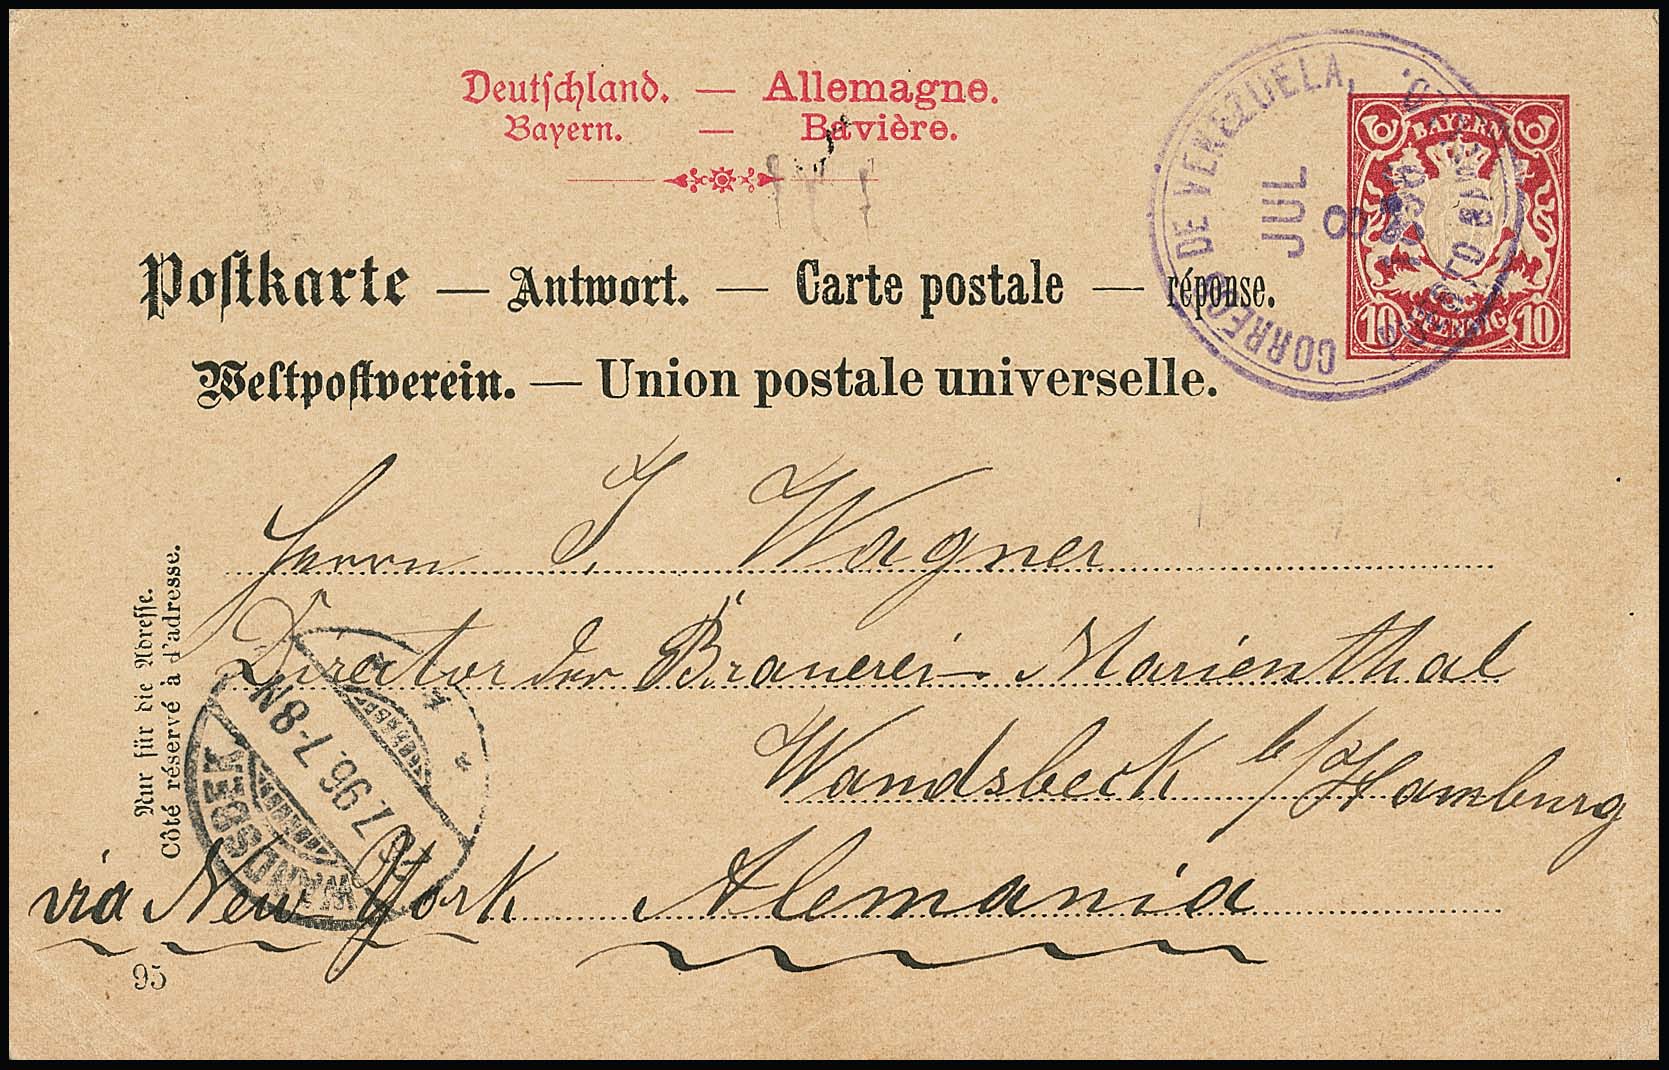 Deutschland. — Allemagne.
Bayern. — Bavière.
Postkarte — Antwort. — Carte postale — réponse.
Weltpostverein. — Union postale universelle.
BAYERN
10 PFENNIG 10
CORREOS DE VENEZUELA,
JUL
8
1896
Herrn J. Wagner
Director der Brauerei Marienthal
Wandsbeck b/Hamburg
via New York Alemania
Nur für die Adresse.
Côté réservé à d'adresse.
WANDSBEK
7.96. 7-8N
95